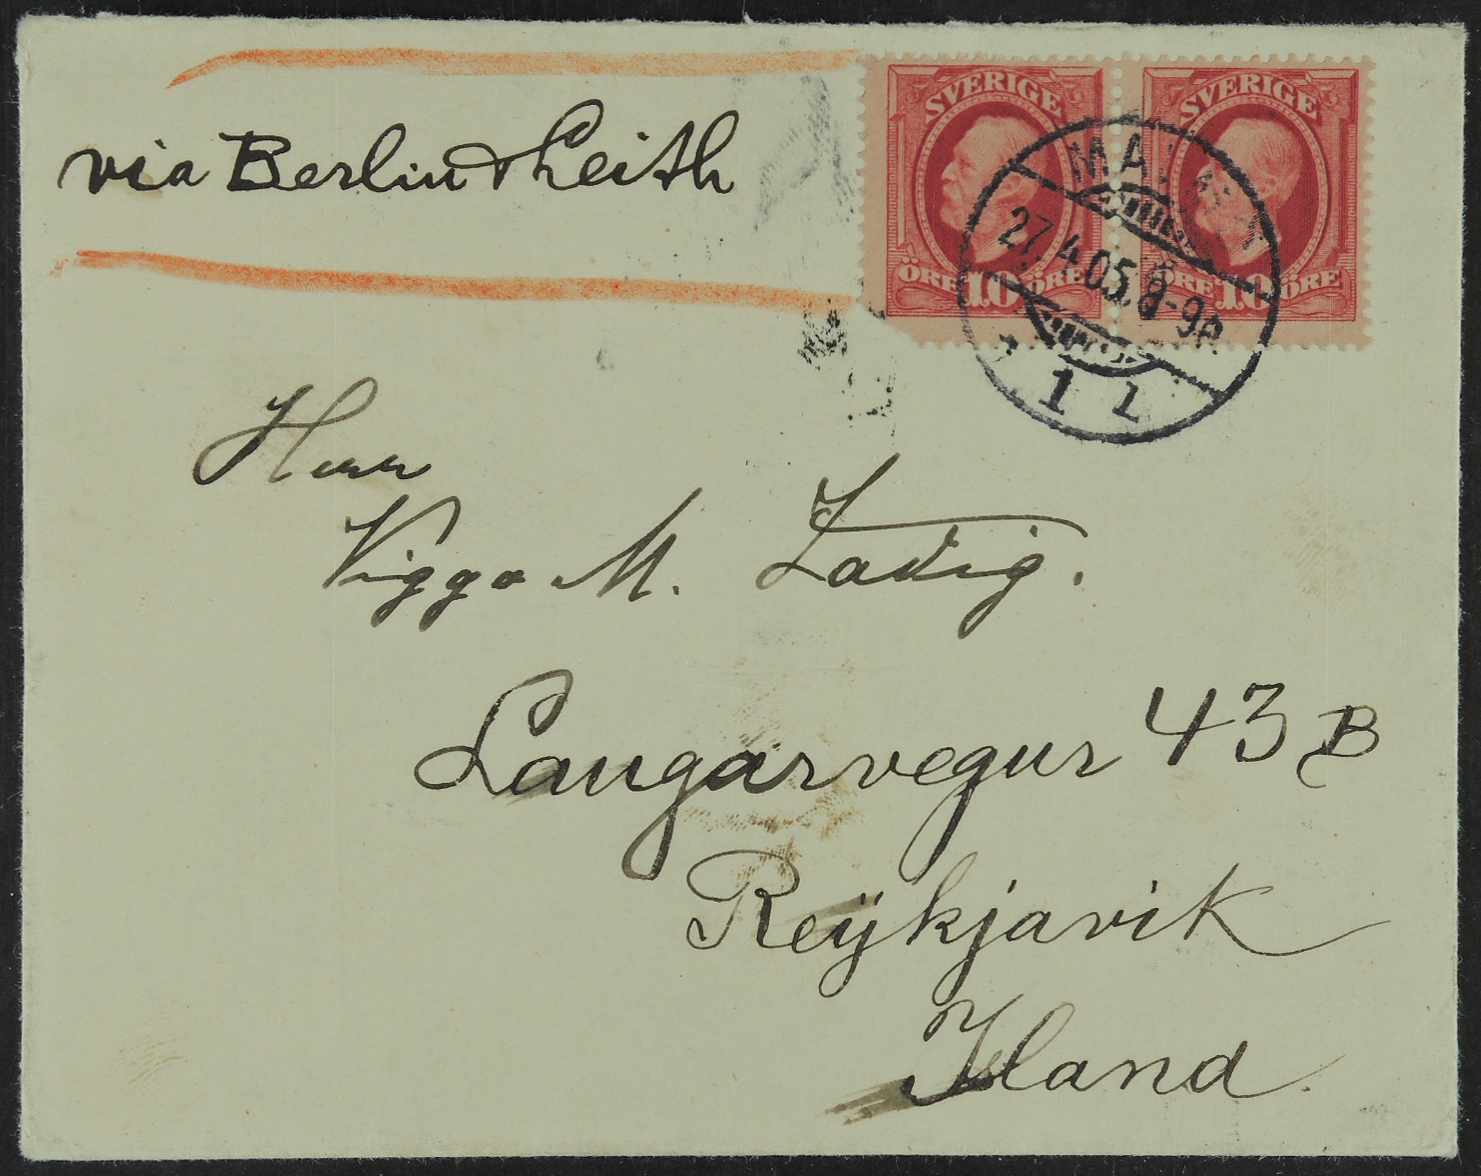 via Berlin & Leith
SVERIGE
ÖRE 10 ÖRE
SVERIGE
ÖRE 10 ÖRE
MALMÖ
27.4.05.8-9F.
1 1
Herr
Viggo M. Zadig.
Laugarvegur 43 B
Reÿkjavik
Island.